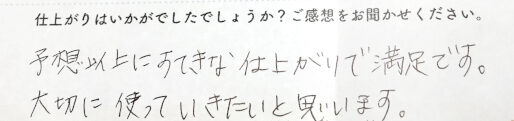 仕上がりはいかがでしたでしょうか？ご感想をお聞かせください。
予想以上にすてきな仕上がりで満足です。
大切に使っていきたいと思います。